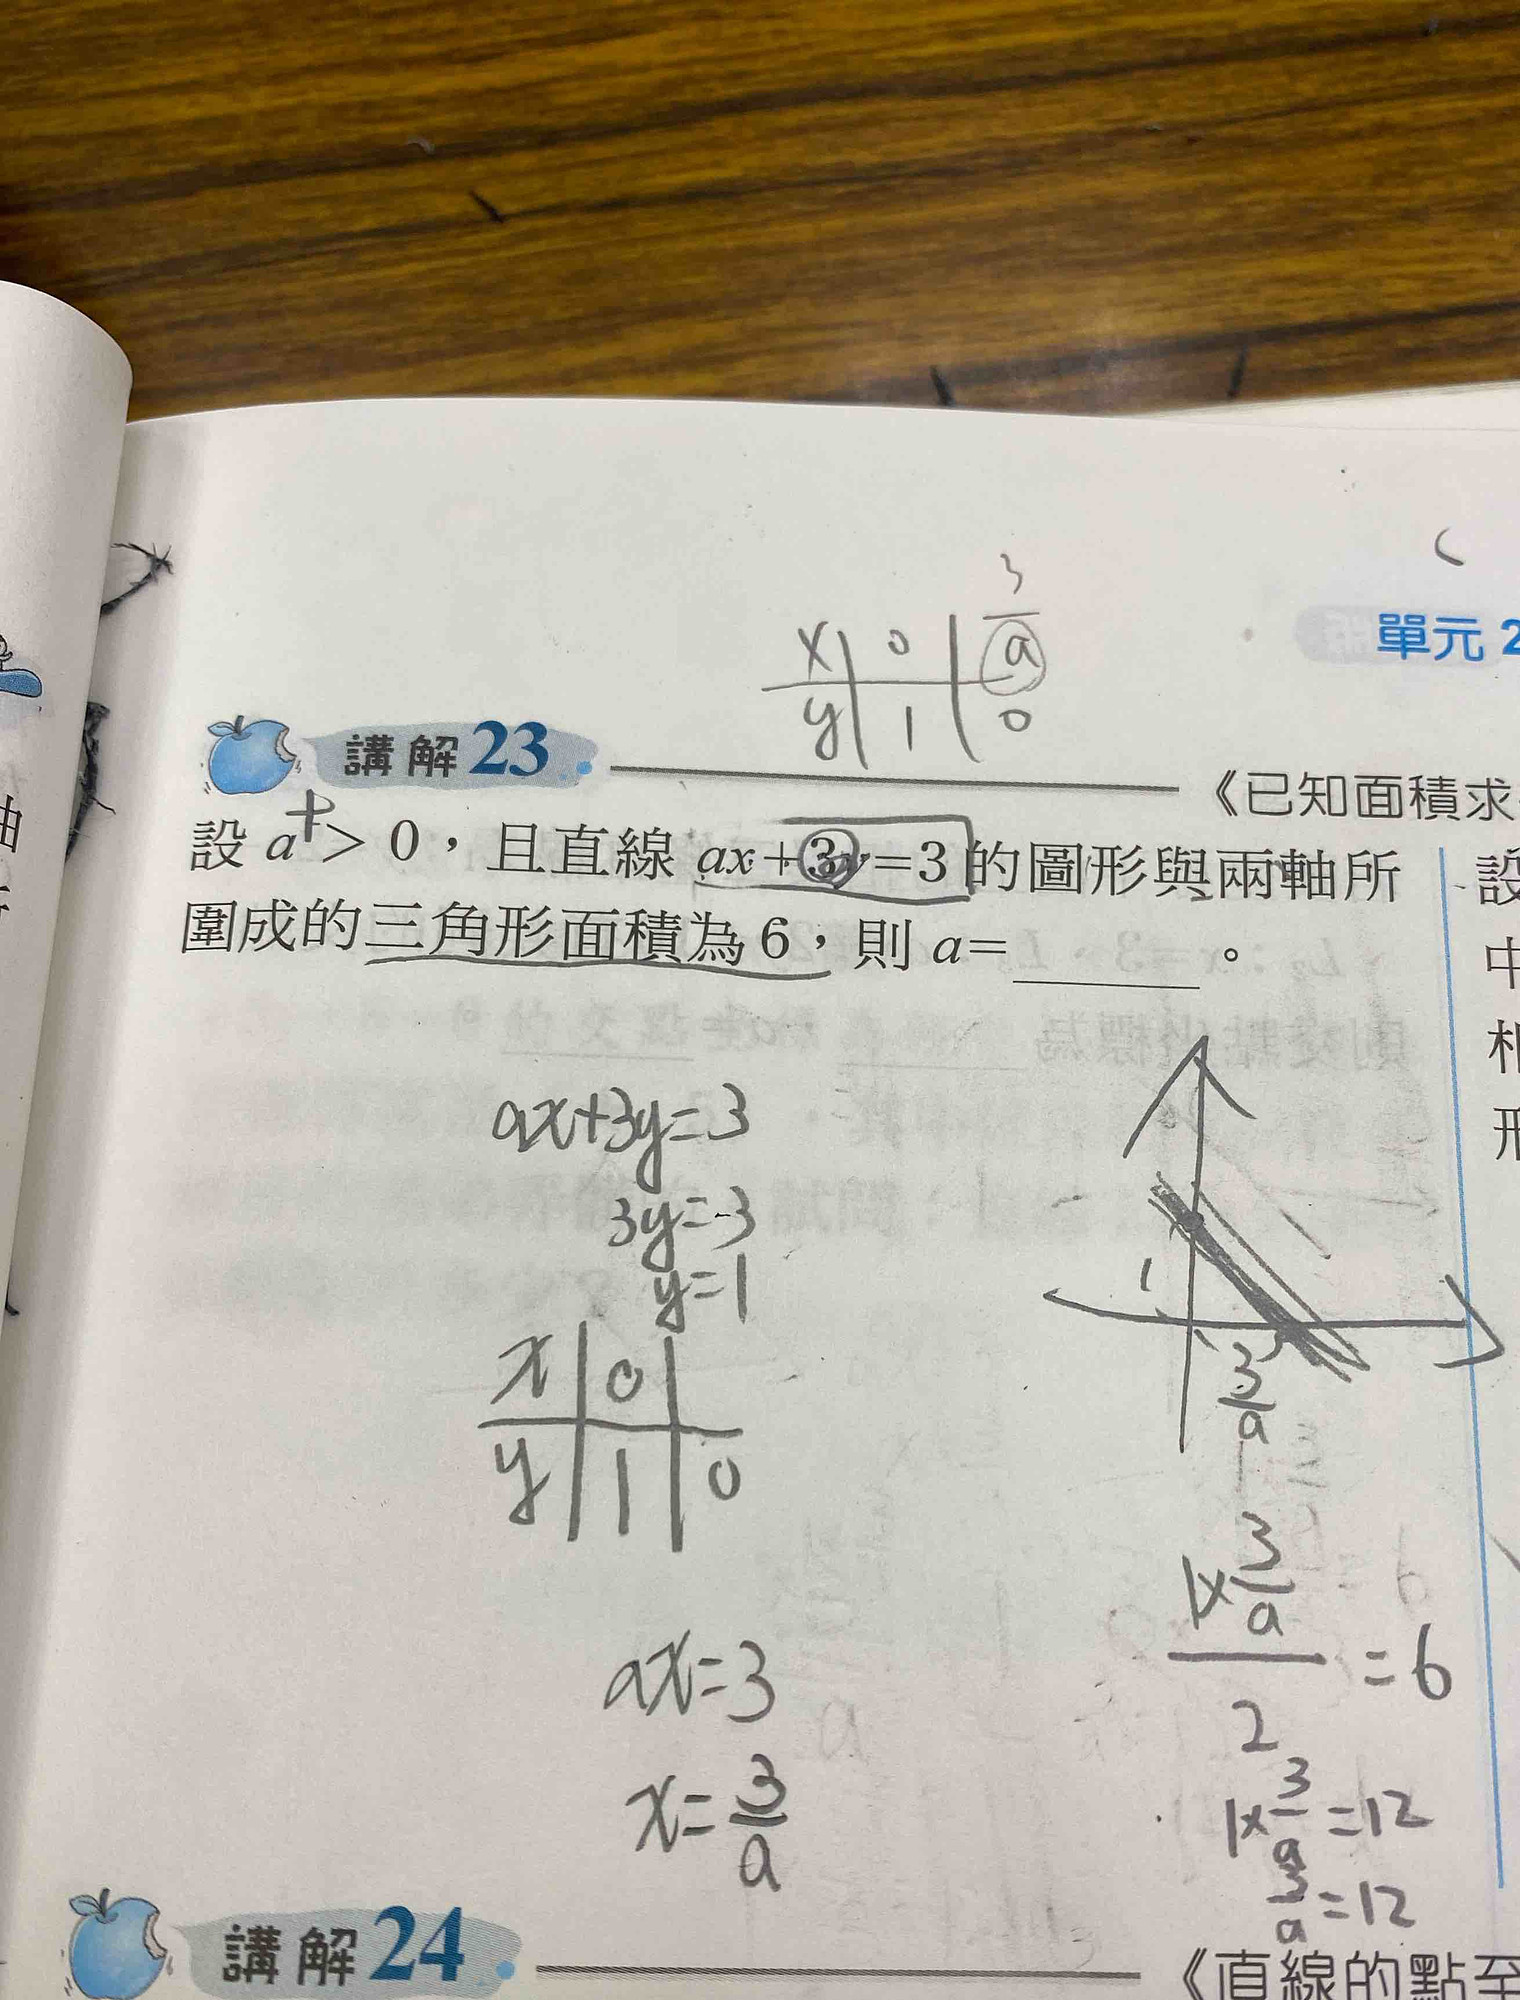 3
x 0 a
y 1 0
單元 2
講解 23
《已知面積求
設 a > 0，且直線 ax+3y=3 的圖形與兩軸所
圍成的三角形面積為 6，則 a=______。
+
ax+3y=3
3y=3
y=1
x 0
y 1 0
ax=3
x=3/a
1
3/a
1×3/a
2
=6
1×3/a=12
3/a=12
設
中
形
講解 24
《直線的點至